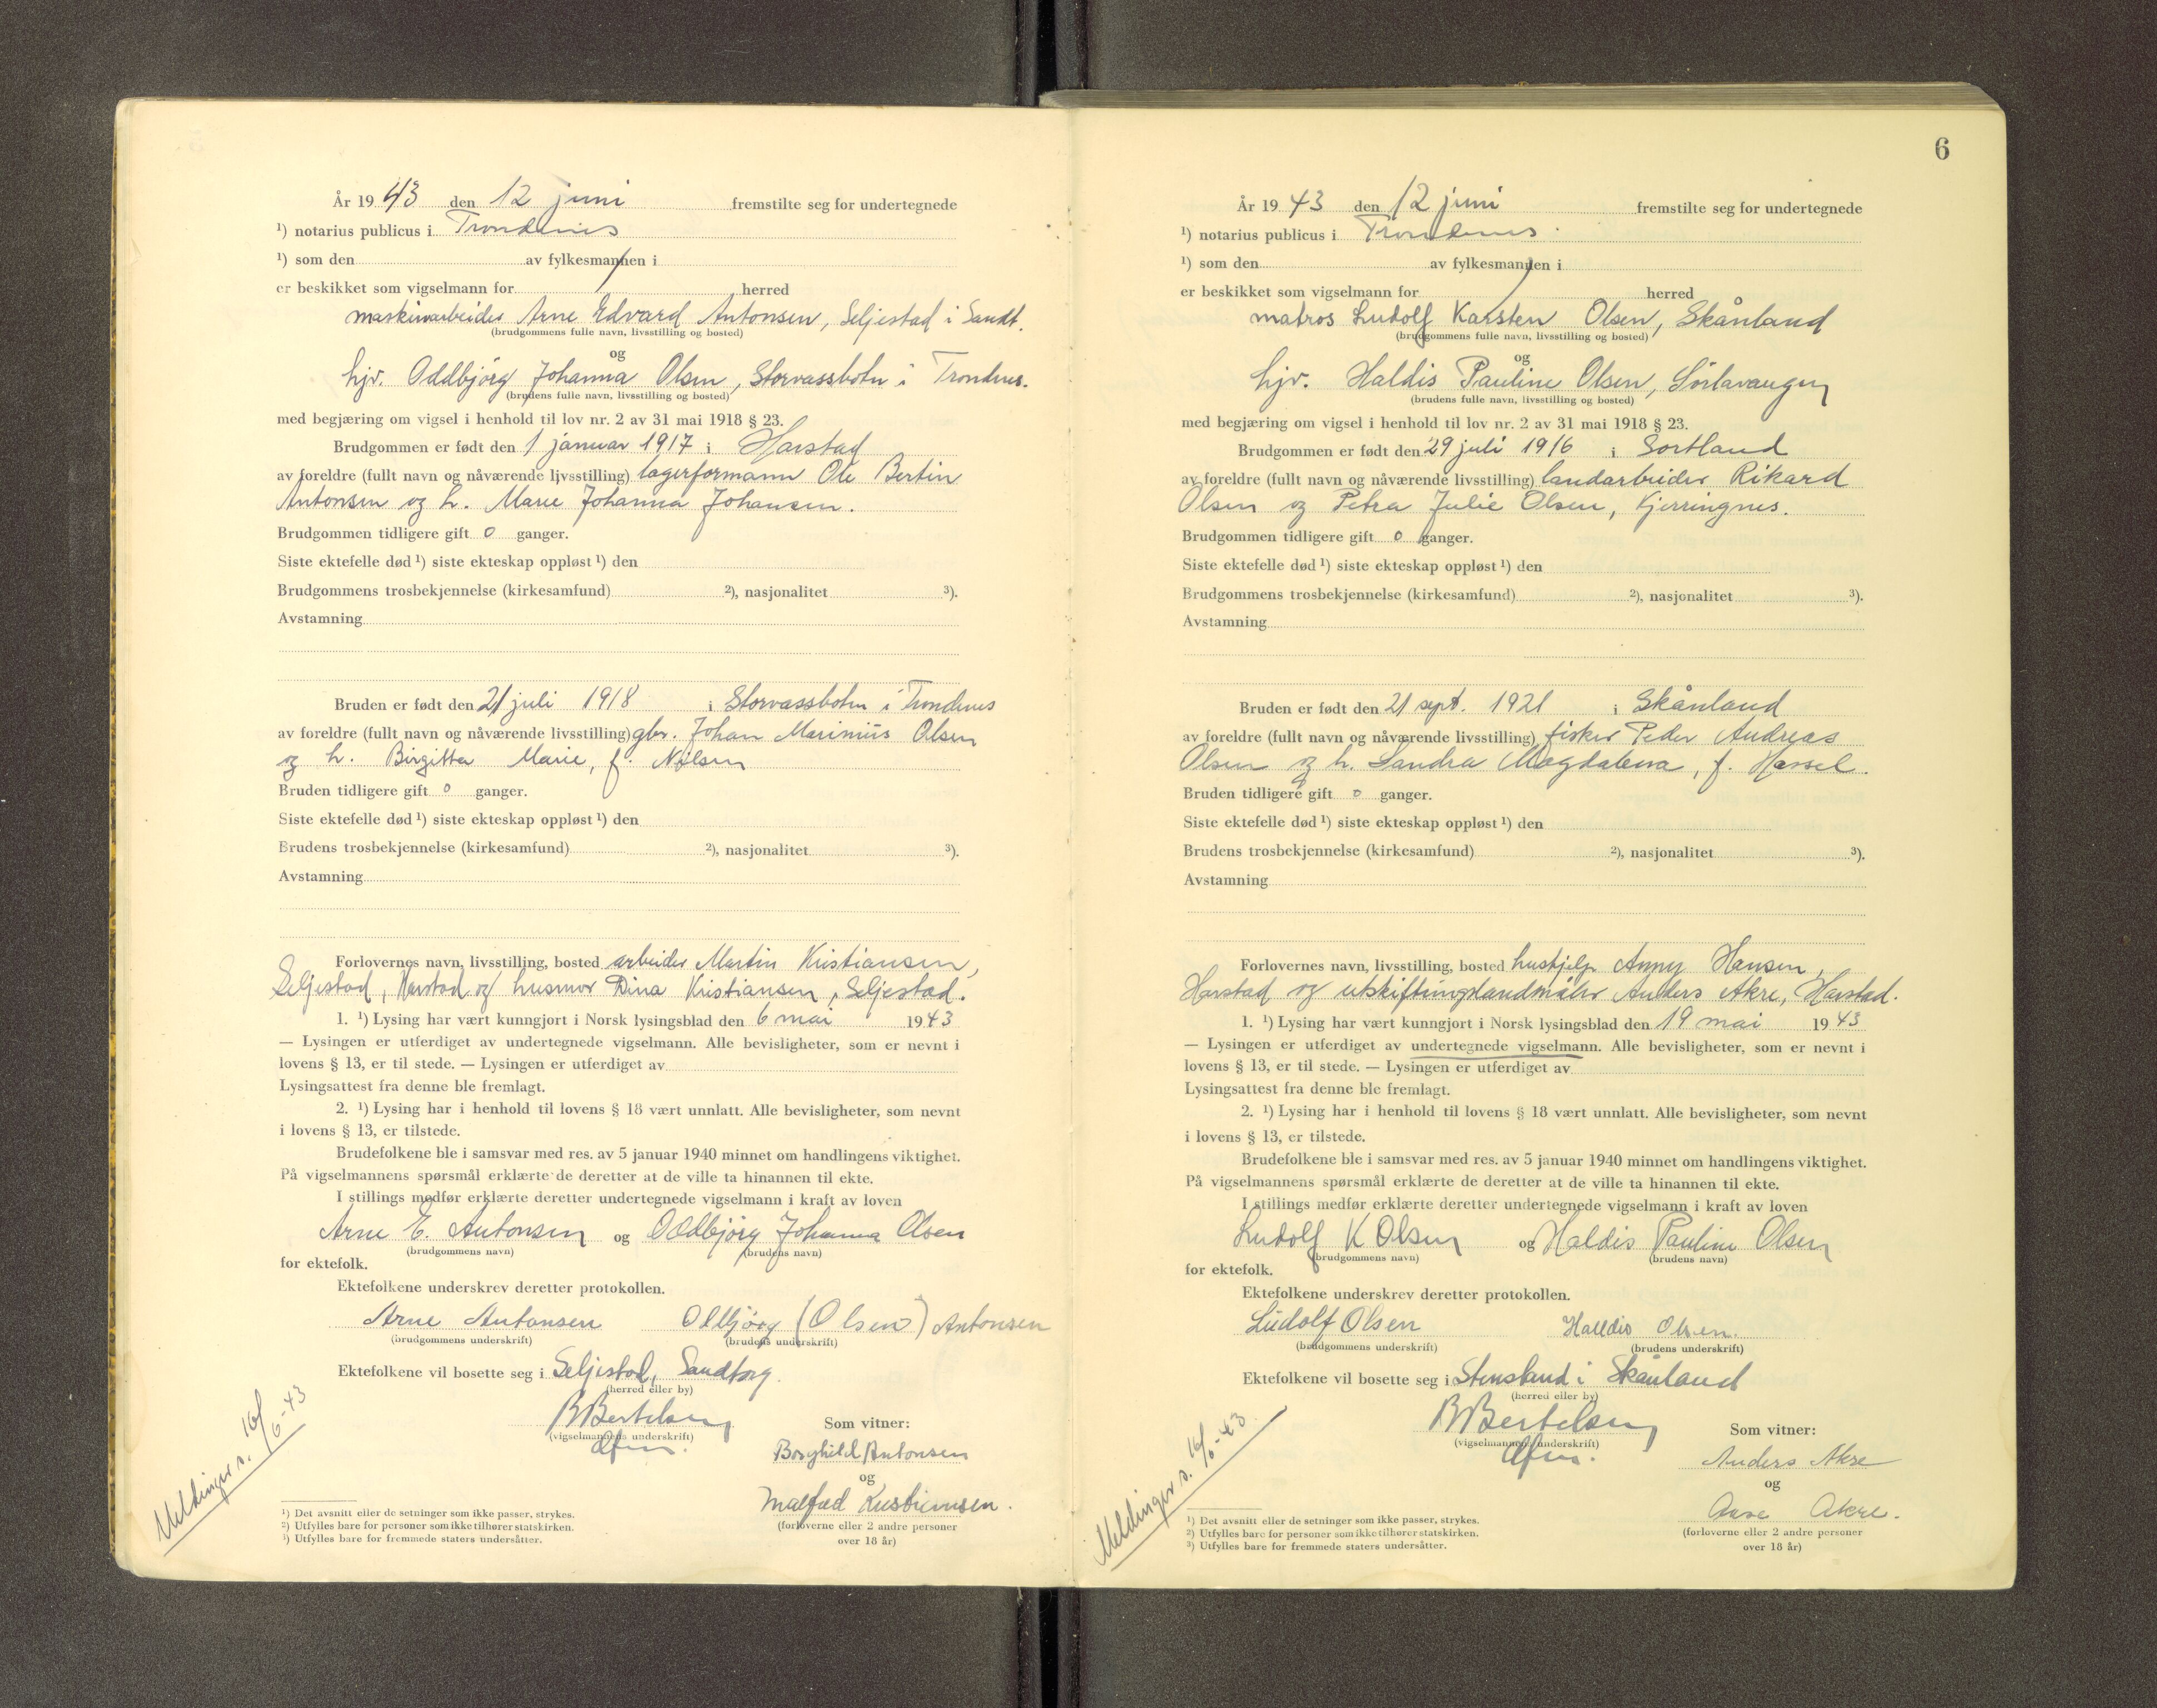 År 19 43 den 12 juni fremstilte seg for undertegnede
¹) notarius publicus i Trondenes
¹) som den av fylkesmannen i
er beskikket som vigselmann for herred
maskinarbeider Arne Edvard Antonsen, Seljestad i Sandt.
(brudgommens fulle navn, livsstilling og bosted)
og
hjv. Oddbjørg Johanna Olsen, Storvassbotn i Trondnes.
(brudens fulle navn, livsstilling og bosted)
med begjæring om vigsel i henhold til lov nr. 2 av 31 mai 1918 § 23.
Brudgommen er født den 1 januar 1917 i Harstad
av foreldre (fullt navn og nåværende livsstilling) lagerformann Ole Bertin
Antonsen og h. Marie Johanna Johansen.
Brudgommen tidligere gift 0 ganger.
Siste ektefelle død ¹) siste ekteskap oppløst ¹) den
Brudgommens trosbekjennelse (kirkesamfund) ²), nasjonalitet ³).
Avstamning
Bruden er født den 21 juli 1918 i Storvassbotn i Trondenes
av foreldre (fullt navn og nåværende livsstilling) gbr. Johan Marinius Olsen
og h. Birgitta Marie, f. Nilsen
Bruden tidligere gift 0 ganger.
Siste ektefelle død ¹) siste ekteskap oppløst ¹) den
Brudens trosbekjennelse (kirkesamfund) ²), nasjonalitet ³).
Avstamning
Forlovernes navn, livsstilling, bosted arbeider Martin Kristiansen,
Seljestad, Harstad og husmor Dina Kristiansen, Seljestad.
1. ¹) Lysing har vært kunngjort i Norsk lysingsblad den 6 mai 19 43
— Lysingen er utferdiget av undertegnede vigselmann. Alle bevisligheter, som er nevnt i
lovens § 13, er til stede. — Lysingen er utferdiget av
Lysingsattest fra denne ble fremlagt.
2. ¹) Lysing har i henhold til lovens § 18 vært unnlatt. Alle bevisligheter, som nevnt
i lovens § 13, er tilstede.
Brudefolkene ble i samsvar med res. av 5 januar 1940 minnet om handlingens viktighet.
På vigselmannens spørsmål erklærte de deretter at de ville ta hinannen til ekte.
I stillings medfør erklærte deretter undertegnede vigselmann i kraft av loven
Arne E. Antonsen og Oddbjørg Johanna Olsen
(brudgommens navn) (brudens navn)
for ektefolk.
Ektefolkene underskrev deretter protokollen.
Arne Antonsen Odbjørg (Olsen) Antonsen
(brudgommens underskrift) (brudens underskrift)
Ektefolkene vil bosette seg i Seljestad, Sandtorg.
(herred eller by)
B Bertelsen
(vigselmannens underskrift)
Som vitner:
Borghild Antonsen
og
Malfred Kristiansen.
(forloverne eller 2 andre personer
over 18 år)
Meldinger s. 16/6-43
¹) Det avsnitt eller de setninger som ikke passer, strykes.
²) Utfylles bare for personer som ikke tilhører statskirken.
³) Utfylles bare for fremmede staters undersåtter.
6
År 19 43 den 12 juni fremstilte seg for undertegnede
¹) notarius publicus i Trondenes
¹) som den av fylkesmannen i
er beskikket som vigselmann for herred
matros Ludolf Karsten Olsen, Skånland
(brudgommens fulle navn, livsstilling og bosted)
og
hjv. Haldis Pauline Olsen, Sørlavangen
(brudens fulle navn, livsstilling og bosted)
med begjæring om vigsel i henhold til lov nr. 2 av 31 mai 1918 § 23.
Brudgommen er født den 29 juli 1916 i Sortland
av foreldre (fullt navn og nåværende livsstilling) landarbeider Rikard
Olsen og Petra Julie Olsen, Kjerringnes.
Brudgommen tidligere gift 0 ganger.
Siste ektefelle død ¹) siste ekteskap oppløst ¹) den
Brudgommens trosbekjennelse (kirkesamfund) ²), nasjonalitet ³).
Avstamning
Bruden er født den 21 sept. 1921 i Skånland
av foreldre (fullt navn og nåværende livsstilling) fisker Peder Andreas
Olsen og h. Sandra Magdalena, f. Hassel.
Bruden tidligere gift 0 ganger.
Siste ektefelle død ¹) siste ekteskap oppløst ¹) den
Brudens trosbekjennelse (kirkesamfund) ²), nasjonalitet ³).
Avstamning
Forlovernes navn, livsstilling, bosted hushjelp Anny Hansen,
Harstad og utskiftningslandmåler Anders Akre, Harstad.
1. ¹) Lysing har vært kunngjort i Norsk lysingsblad den 19 mai 19 43
— Lysingen er utferdiget av undertegnede vigselmann. Alle bevisligheter, som er nevnt i
lovens § 13, er til stede. — Lysingen er utferdiget av
Lysingsattest fra denne ble fremlagt.
2. ¹) Lysing har i henhold til lovens § 18 vært unnlatt. Alle bevisligheter, som nevnt
i lovens § 13, er tilstede.
Brudefolkene ble i samsvar med res. av 5 januar 1940 minnet om handlingens viktighet.
På vigselmannens spørsmål erklærte de deretter at de ville ta hinannen til ekte.
I stillings medfør erklærte deretter undertegnede vigselmann i kraft av loven
Ludolf K Olsen og Haldis Pauline Olsen
(brudgommens navn) (brudens navn)
for ektefolk.
Ektefolkene underskrev deretter protokollen.
Ludolf Olsen Halldis Olsen.
(brudgommens underskrift) (brudens underskrift)
Ektefolkene vil bosette seg i Stensland i Skånland
(herred eller by)
B Bertelsen
(vigselmannens underskrift)
Som vitner:
Anders Akre
og
Aase Akre.
(forloverne eller 2 andre personer
over 18 år)
Meldinger s. 16/6-43
¹) Det avsnitt eller de setninger som ikke passer, strykes.
²) Utfylles bare for personer som ikke tilhører statskirken.
³) Utfylles bare for fremmede staters undersåtter.